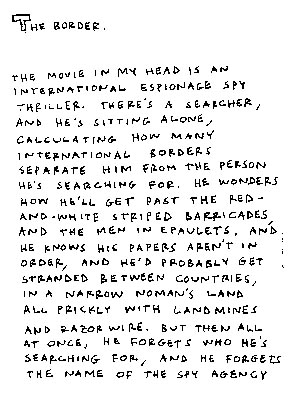 THE BORDER.
THE MOVIE IN MY HEAD IS AN
INTERNATIONAL ESPIONAGE SPY
THRILLER. THERE'S A SEARCHER,
AND HE'S SITTING ALONE,
CALCULATING HOW MANY
INTERNATIONAL BORDERS
SEPARATE HIM FROM THE PERSON
HE'S SEARCHING FOR. HE WONDERS
HOW HE'LL GET PAST THE RED-
AND-WHITE STRIPED BARRICADES,
AND THE MEN IN EPAULETS, AND
HE KNOWS HIS PAPERS AREN'T IN
ORDER, AND HE'D PROBABLY GET
STRANDED BETWEEN COUNTRIES,
IN A NARROW NOMAN'S LAND
ALL PRICKLY WITH LANDMINES
AND RAZOR WIRE. BUT THEN ALL
AT ONCE, HE FORGETS WHO HE'S
SEARCHING FOR, AND HE FORGETS
THE NAME OF THE SPY AGENCY